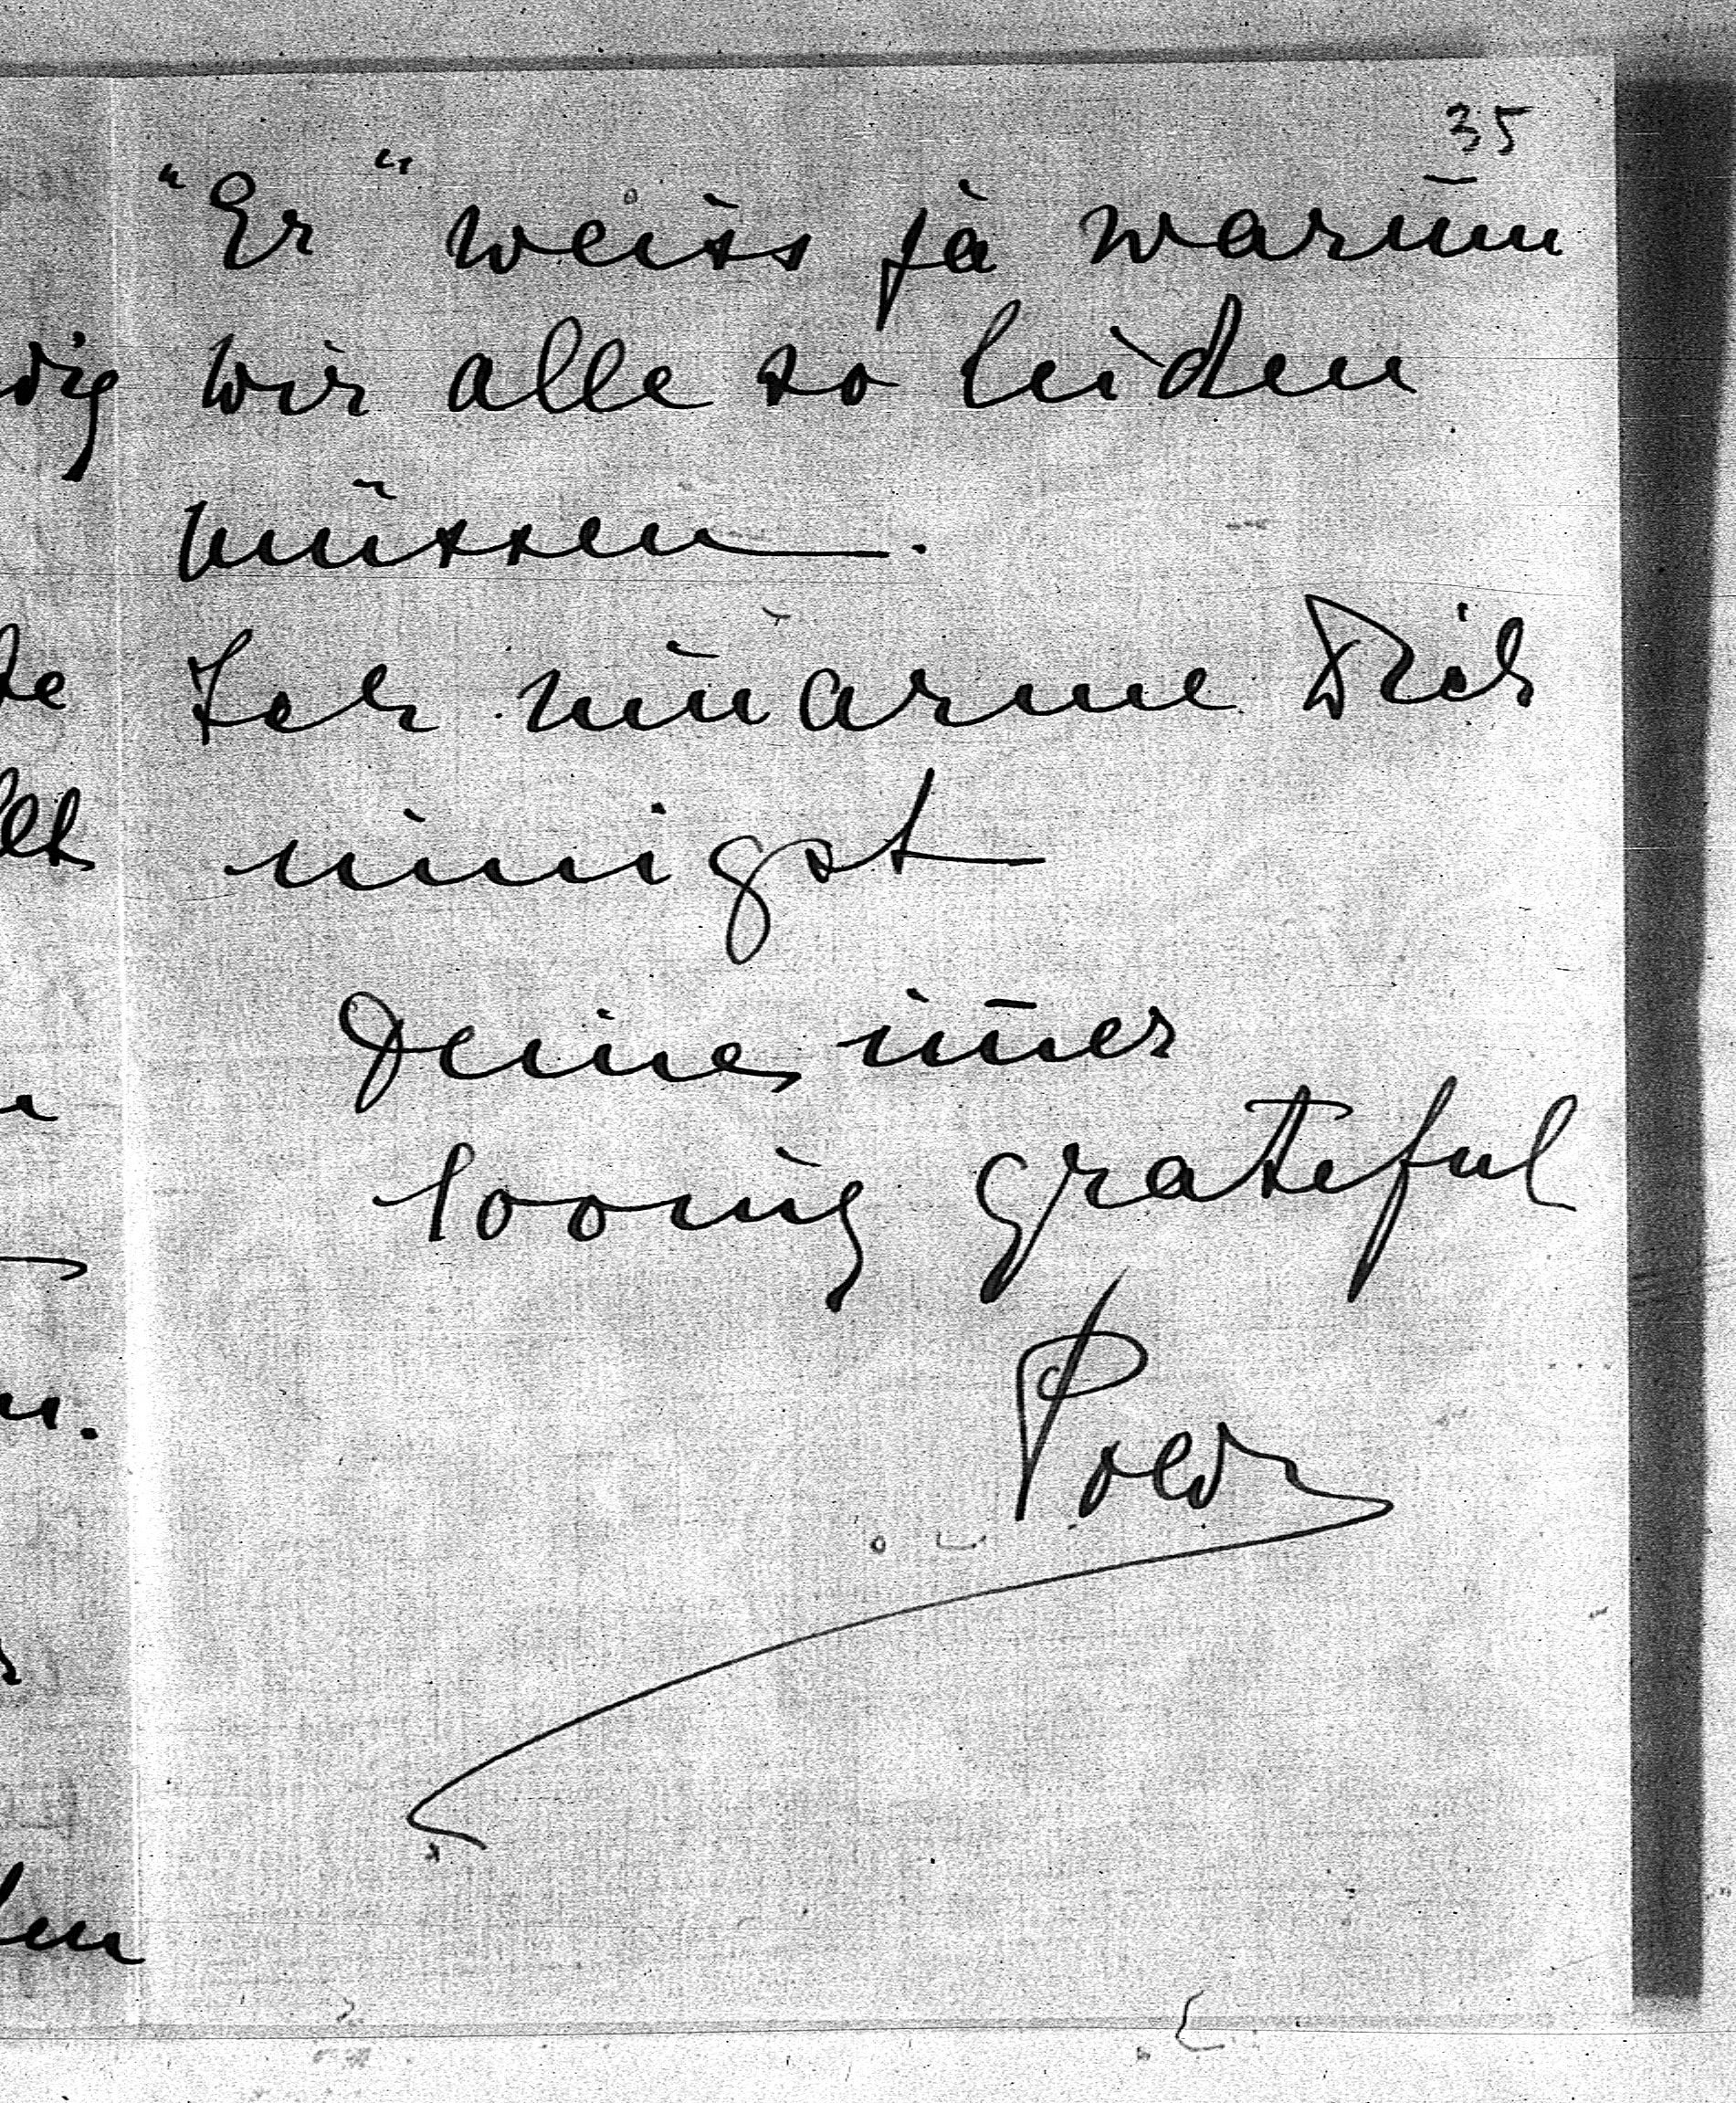 35
"Er" weiss ja warum
wir alle so leiden
müssen.
Ich umarme Dich
innigst
Deine im̅er
loving grateful